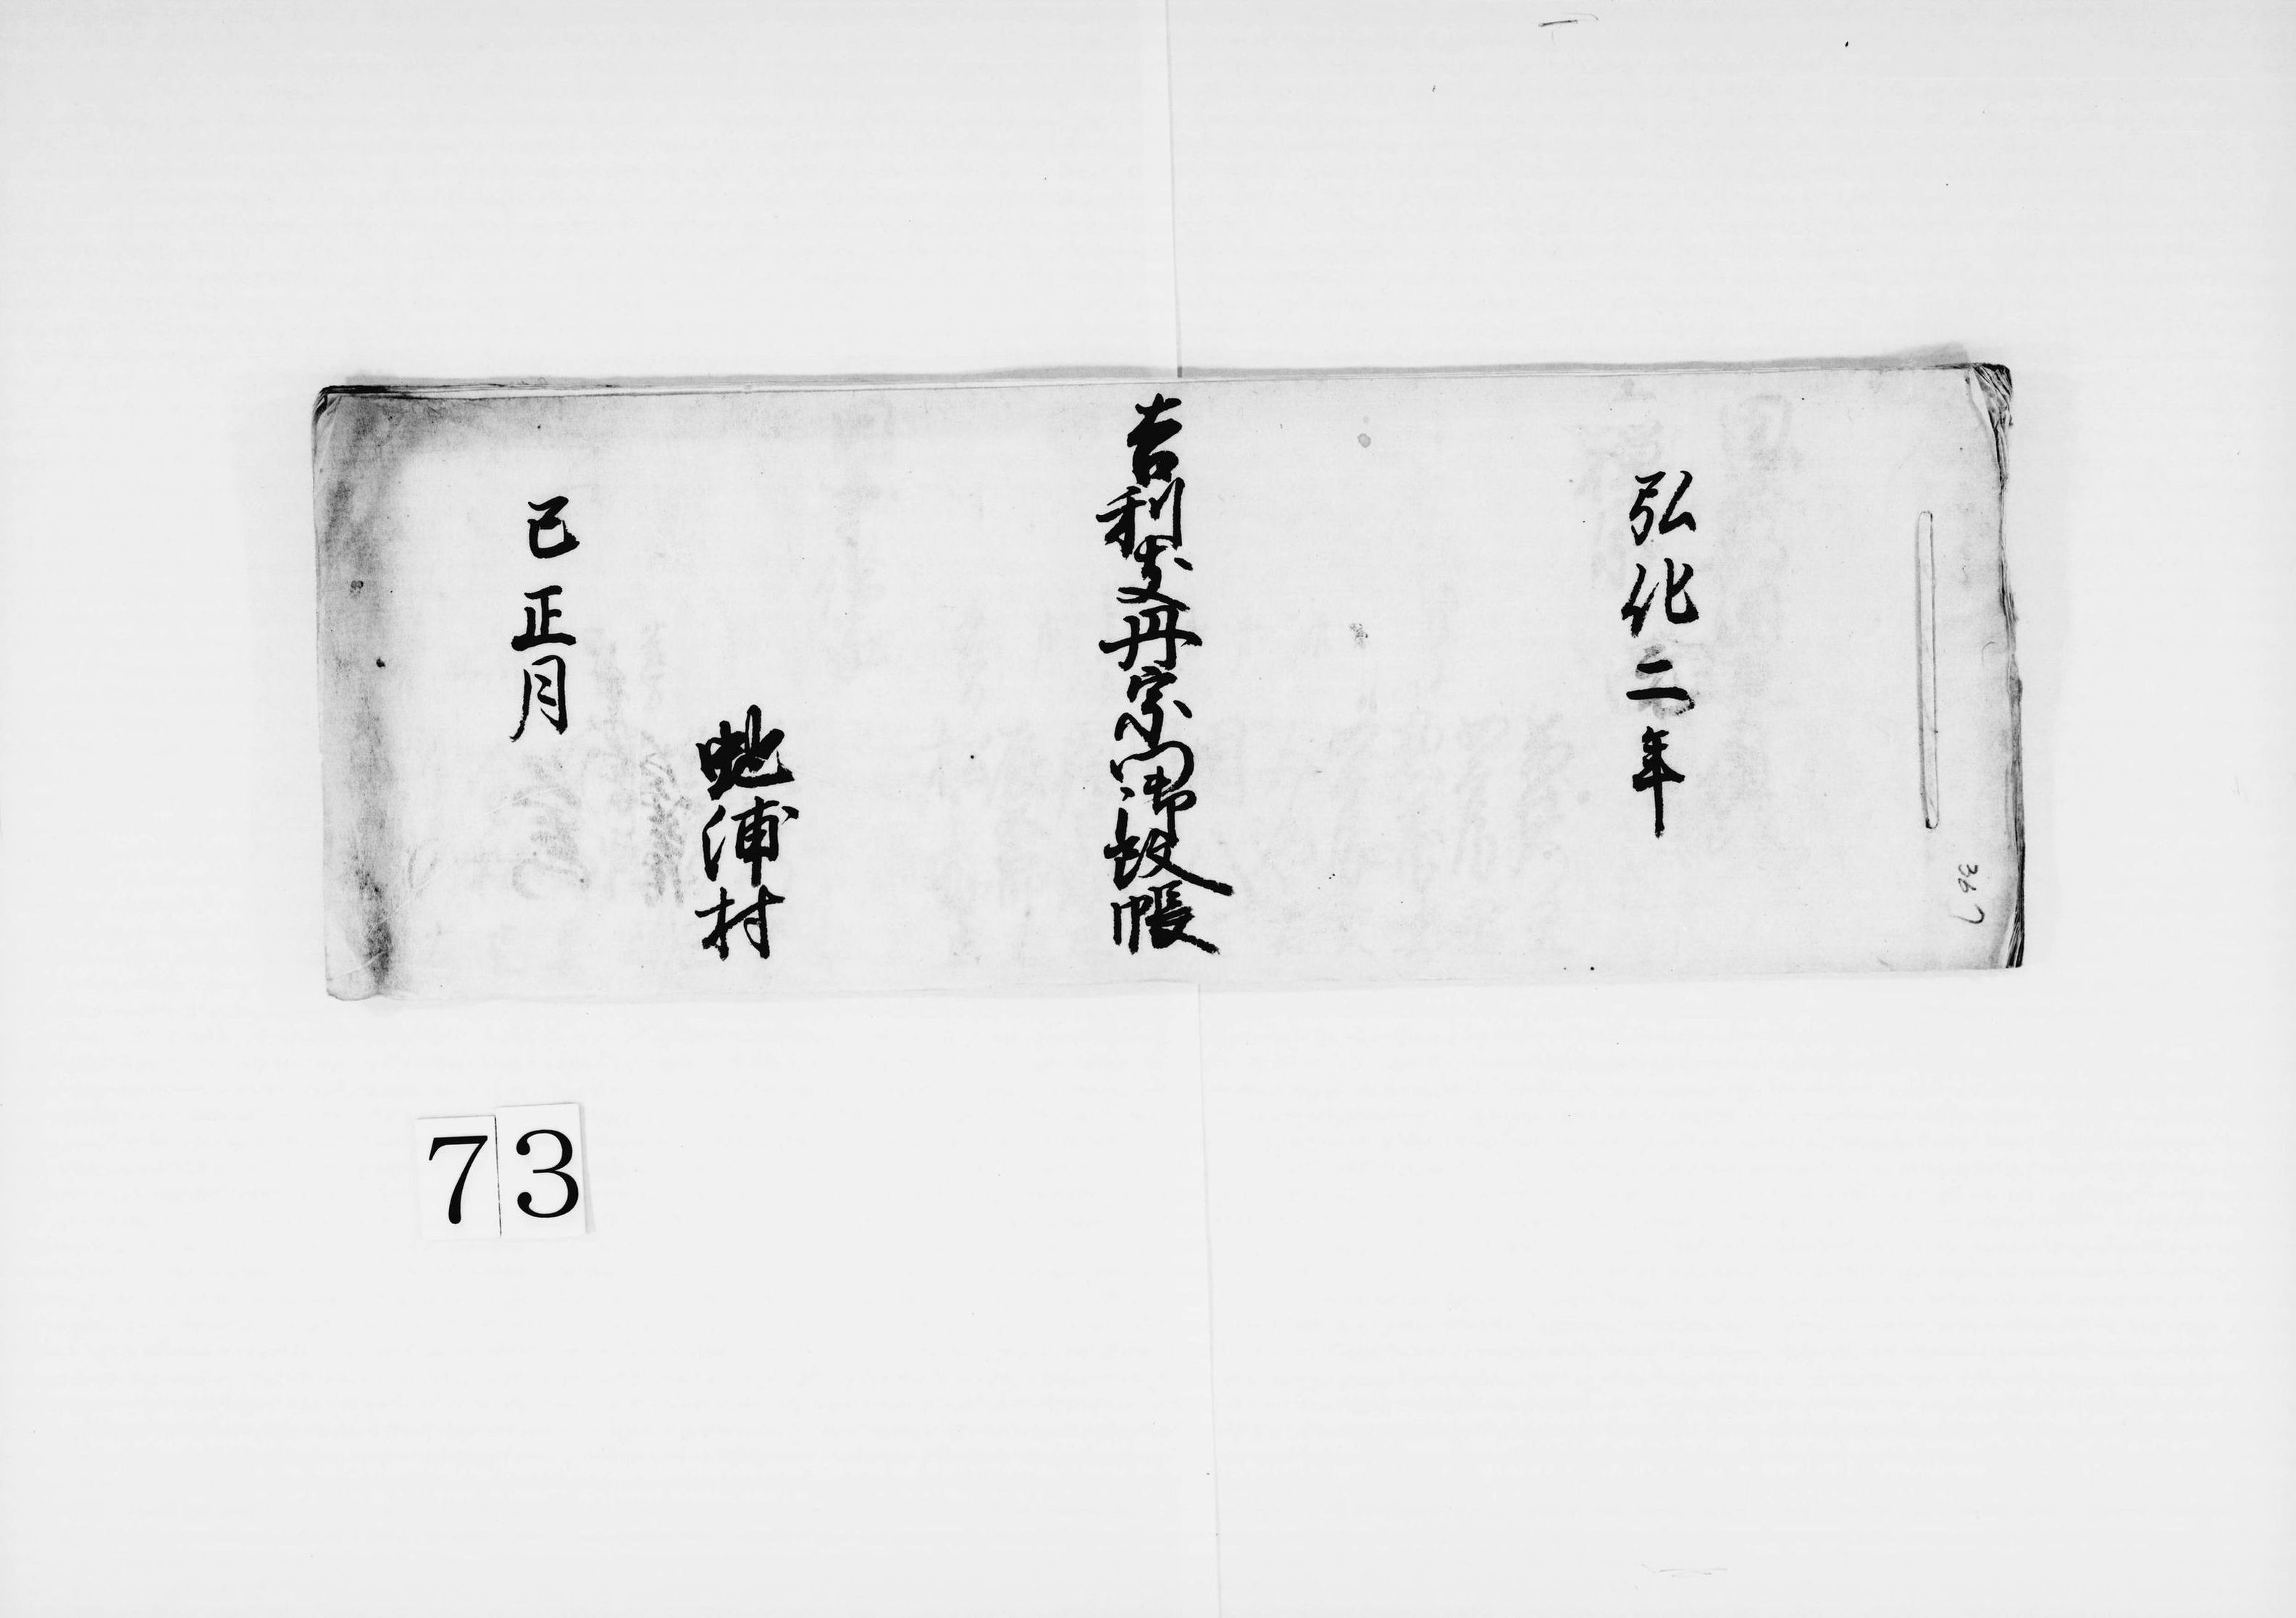 弘化二年
吉利支丹宗門御改帳
蛇浦村
巳正月
367
73